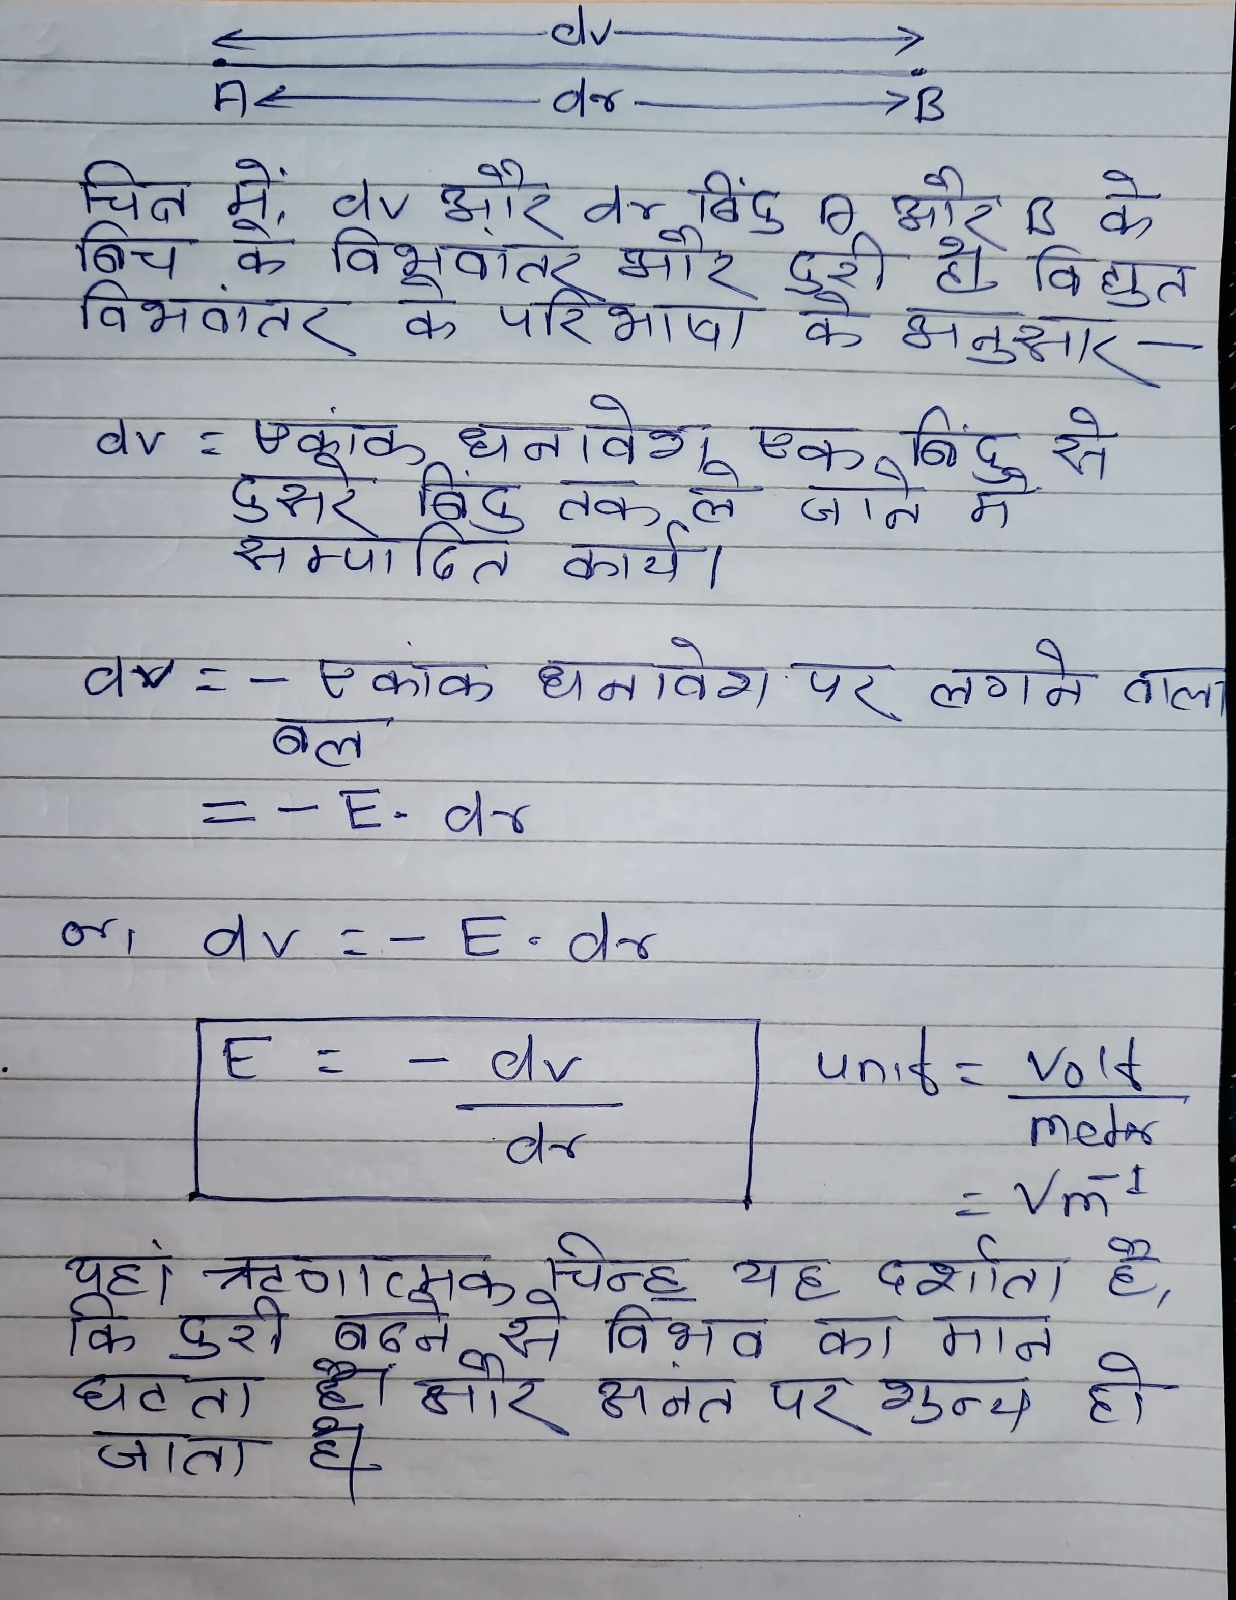 dv
A dr B
चित्र में, dv और dr बिंदु A और B के
बिच के विभवांतर और दुरी है। विद्युत
विभवांतर के परिभाषा के अनुसार-
dv = एकांक धनावेश एक बिंदु से
दुसरे बिंदु तक ले जाने में
सम्पादित कार्य।
dv = - एकांक धनावेश पर लगने वाला
बल
= - E. dr
or, dv = - E. dr
E = - dv
dr
unit = Volt
meter
= Vm⁻¹
यहां ऋणात्मक चिन्ह यह दर्शाता है,
कि दुरी बढने से विभव का मान
घटता है। और अनंत पर शुन्य हो
जाता है।